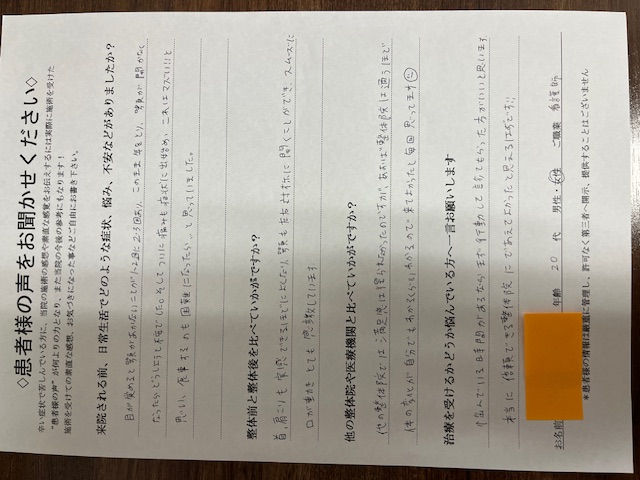 ◇患者様の声をお聞かせください◇
辛い症状で苦しんでいる方に、当院の施術の感想や素直な感覚をお伝えするには実際に施術を受けた
"患者様の声"が何よりの力となり、また当院の今後の参考にもなります！
施術を受けての素直な感想、お気づきになった事などご自由にお書き下さい。
来院される前、日常生活でどのような症状、悩み、不安などがありましたか？
目が覚めると顎があかないことが1~2週に2~3回あり、このまま年をとり、顎が開かなく
なったらどうしようと不安でした。そしてついに痛みも症状に出始め、これはマズい！！と
思い、食事するのも困難になったら…と思っていました。
整体前と整体後を比べていかがですか？
首、肩こりも実感できるほどに良くなり、顎も左右対称に開くことができ、スムーズに
口が動きとても感激しています
他の整体院や医療機関と比べていかがですか？
他の整体院では満足度は得られなかったのですが、あおば整体院は通うほど
体の変化が自分でもわかるくらいわかるので、来てよかったと毎回思ってます
治療を受けるかどうか悩んでいる方へ一言お願いします
悩んでいる時間があるならまず行動して診てもらった方がいいと思います
本当に信頼できる整体院にであえてよかったと思えるはずです!!
お名前 年齢 20 代 男性・女性 ご職業 看護師
＊患者様の情報は厳重に管理し、許可なく第三者へ開示、提供することはございません